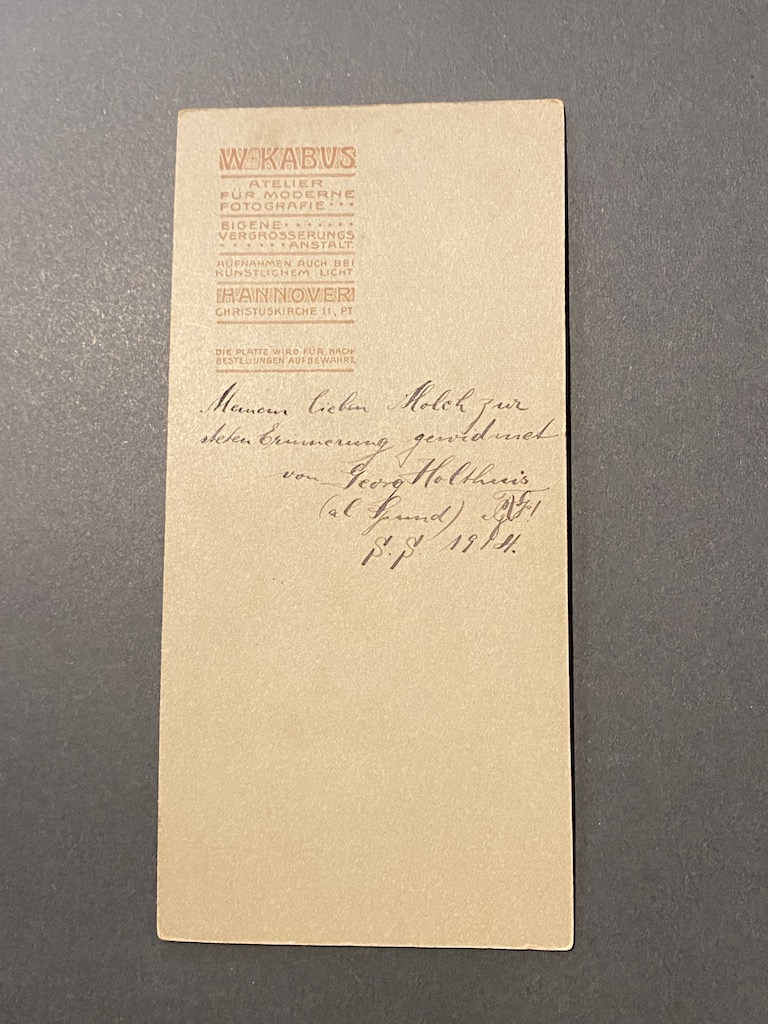 W. KABUS
ATELIER
FÜR MODERNE
FOTOGRAFIE • • •
EIGENE • • • • • • •
VERGRÖSSERUNGS
• • • • • • ANSTALT.
AUFNAHMEN AUCH BEI
KÜNSTLICHEM LICHT
HANNOVER
CHRISTUSKIRCHE 11, PT
DIE PLATTE WIRD FÜR NACH-
BESTELLUNGEN AUFBEWAHRT.
Meinem lieben Molch zur
steten Erinnerung gewidmet
von Georg Holthuis
(al. Spund)
S.S. 1914.